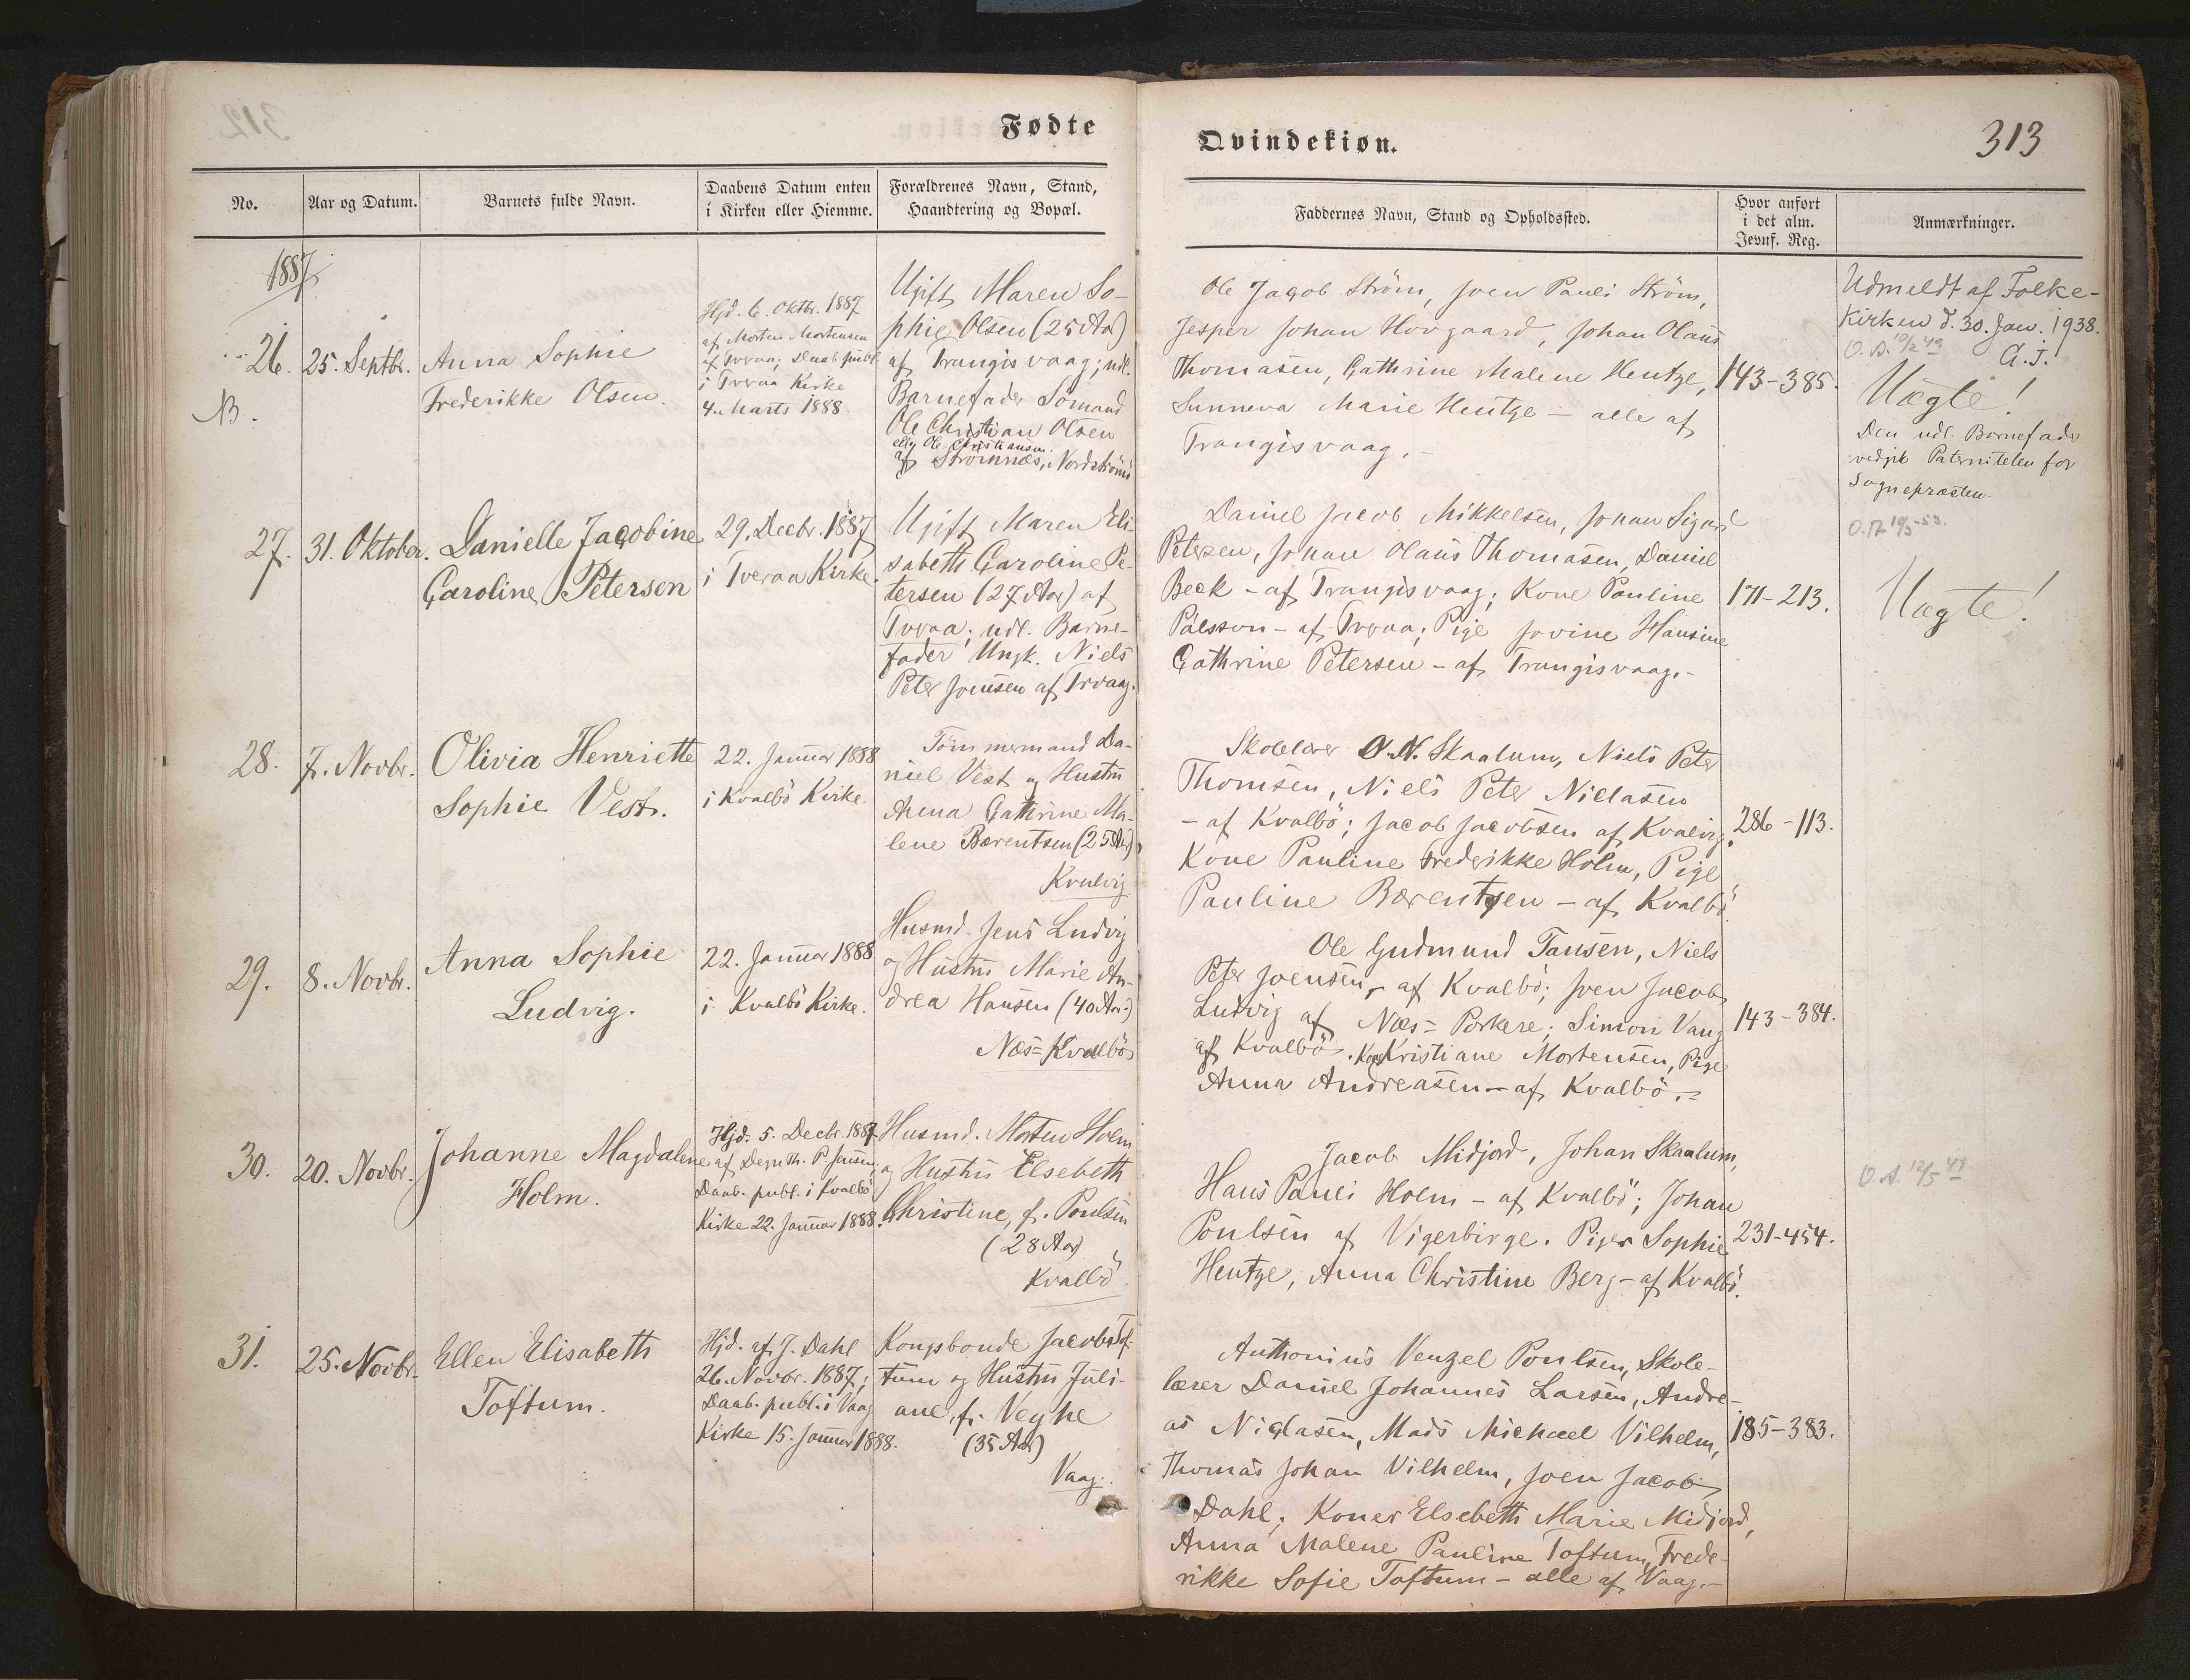 Fødte
Qvindekiøn.
313
No.
Aar og Datum.
Barnets fulde Navn.
Daabens Datum enten
i Kirken eller Hiemme.
Forældrenes Navn, Stand,
Haandtering og Bopæl.
Faddernes Navn, Stand og Opholdssted.
Hvor anført
i det alm.
Jevnf. Reg.
Anmærkninger.
1887
26.
NB.
25. Septbr.
Anna Sophie
Frederikke Olsen.
Hjd. 6. Oktbr. 1887
af Morten Mortensen
af Tveraa; Daab publ.
i Tveraa Kirke
4. Marts 1888.
Ugift Maren So-
phie Olsen (25 Aar)
af Trangisvaag; udl.
Barnefader Sömand
Ole Christian Olsen
ell. Ole Christiansen
af Strömnæs, Nordströmö
Ole Jacob Ström, Joen Pauli Ström,
Jesper Johan Hovgaard, Johan Olaus
Thomasen, Cathrine Malene Hentze,
Sunneva Marie Hentze - alle af
Trangisvaag.
143-385.
Udmeldt af Folke-
Kirken d. 30. Jan. 1938.
O. A. 10/2 49
G. J.
Uægte!
Den udl. Barnefader
vedgik Paterniteten for
Sognepræsten.
27.
31. Oktober.
Danielle Jacobine
Caroline Petersen
29. Decbr. 1887
i Tveraa Kirke.
Ugift Maren Eli-
sabeth Caroline Pe-
tersen (27 Aar) af
Tveraa; udl. Barne-
fader Ungk. Niels
Peter Joensen af Trvaag.
Daniel Jacob Mikkelsen, Johan Sigurd
Petersen, Johan Olaus Thomasen, Daniel
Beck - af Trangisvaag; Kone Pauline
Pålsson - af Tveraa; Pige Jovine Hansine
Cathrine Petersen - af Trangisvaag.-
171-213.
Uægte!
28.
7. Novbr.
Olivia Henriette
Sophie Vest.
22. Januar 1888
i Kvalbö Kirke.
Tömmermand Da-
niel Vest og Hustru
Anna Cathrine Ma-
lene Bærentsen (25 Aar)
Kvalvig
Skolelærer O. N. Skaalum, Niels Peter
Thomsen, Niels Peter Niclasen
- af Kvalbö; Jacob Jacobsen af Kvalvig.
Kone Pauline Frederikke Holm, Pige
Pauline Bærentsen - af Kvalbö.
286-113.
29.
8. Novbr.
Anna Sophie
Ludvig.
22. Januar 1888
i Kvalbö Kirke.
Husmd. Jens Ludvig
og Hustru Marie An-
drea Hansen (40 Aar)
Næs=Kvalbö
Ole Gudmund Tausen, Niels
Peter Joensen - af Kvalbö; Joen Jacob
Ludvig af Næs=Porkere; Simon Vang
af Kvalbö. Kone Kristiane Mortensen, Pige
Anna Andreasen - af Kvalbö.-
143-384.
30.
20. Novbr.
Johanne Magdalene
Holm.
Hjd. 5. Decbr. 1887
af Degn Th. P. Jensen;
Daab. publ. i Kvalbö
Kirke 22. Januar 1888.
Husmd. Morten Holm
og Hustru Elsebeth
Christine, f. Poulsen
(28 Aar)
Kvalbö
Jacob Midjord, Johan Skaalum,
Hans Pauli Holm - af Kvalbö; Johan
Poulsen af Vigerbirge. Piger Sophie
Hentze, Anna Christine Berg - af Kvalbö.
231-454.
O. A. 12/5 49
31.
25. Novbr.
Ellen Elisabeth
Toftum.
Hjd. af J. Dahl
26. Novbr. 1887;
Daab. publ. i Vaag
Kirke 15. Januar 1888.
Kongsbonde Jacob Tof-
tum og Hustru Juli-
ane, f. Veyhe
(35 Aar)
Vaag.
Anthonius Venzel Poulsen, Skole-
lærer Daniel Johannes Larsen, Andre-
as Niclasen, Mads Michael Vilhelm,
Thomas Johan Vilhelm, Joen Jacob
Dahl; Koner Elsebeth Marie Midjord,
Anna Malene Pauline Toftum, Frede-
rikke Sofie Toftum - alle af Vaag.-
185-383.